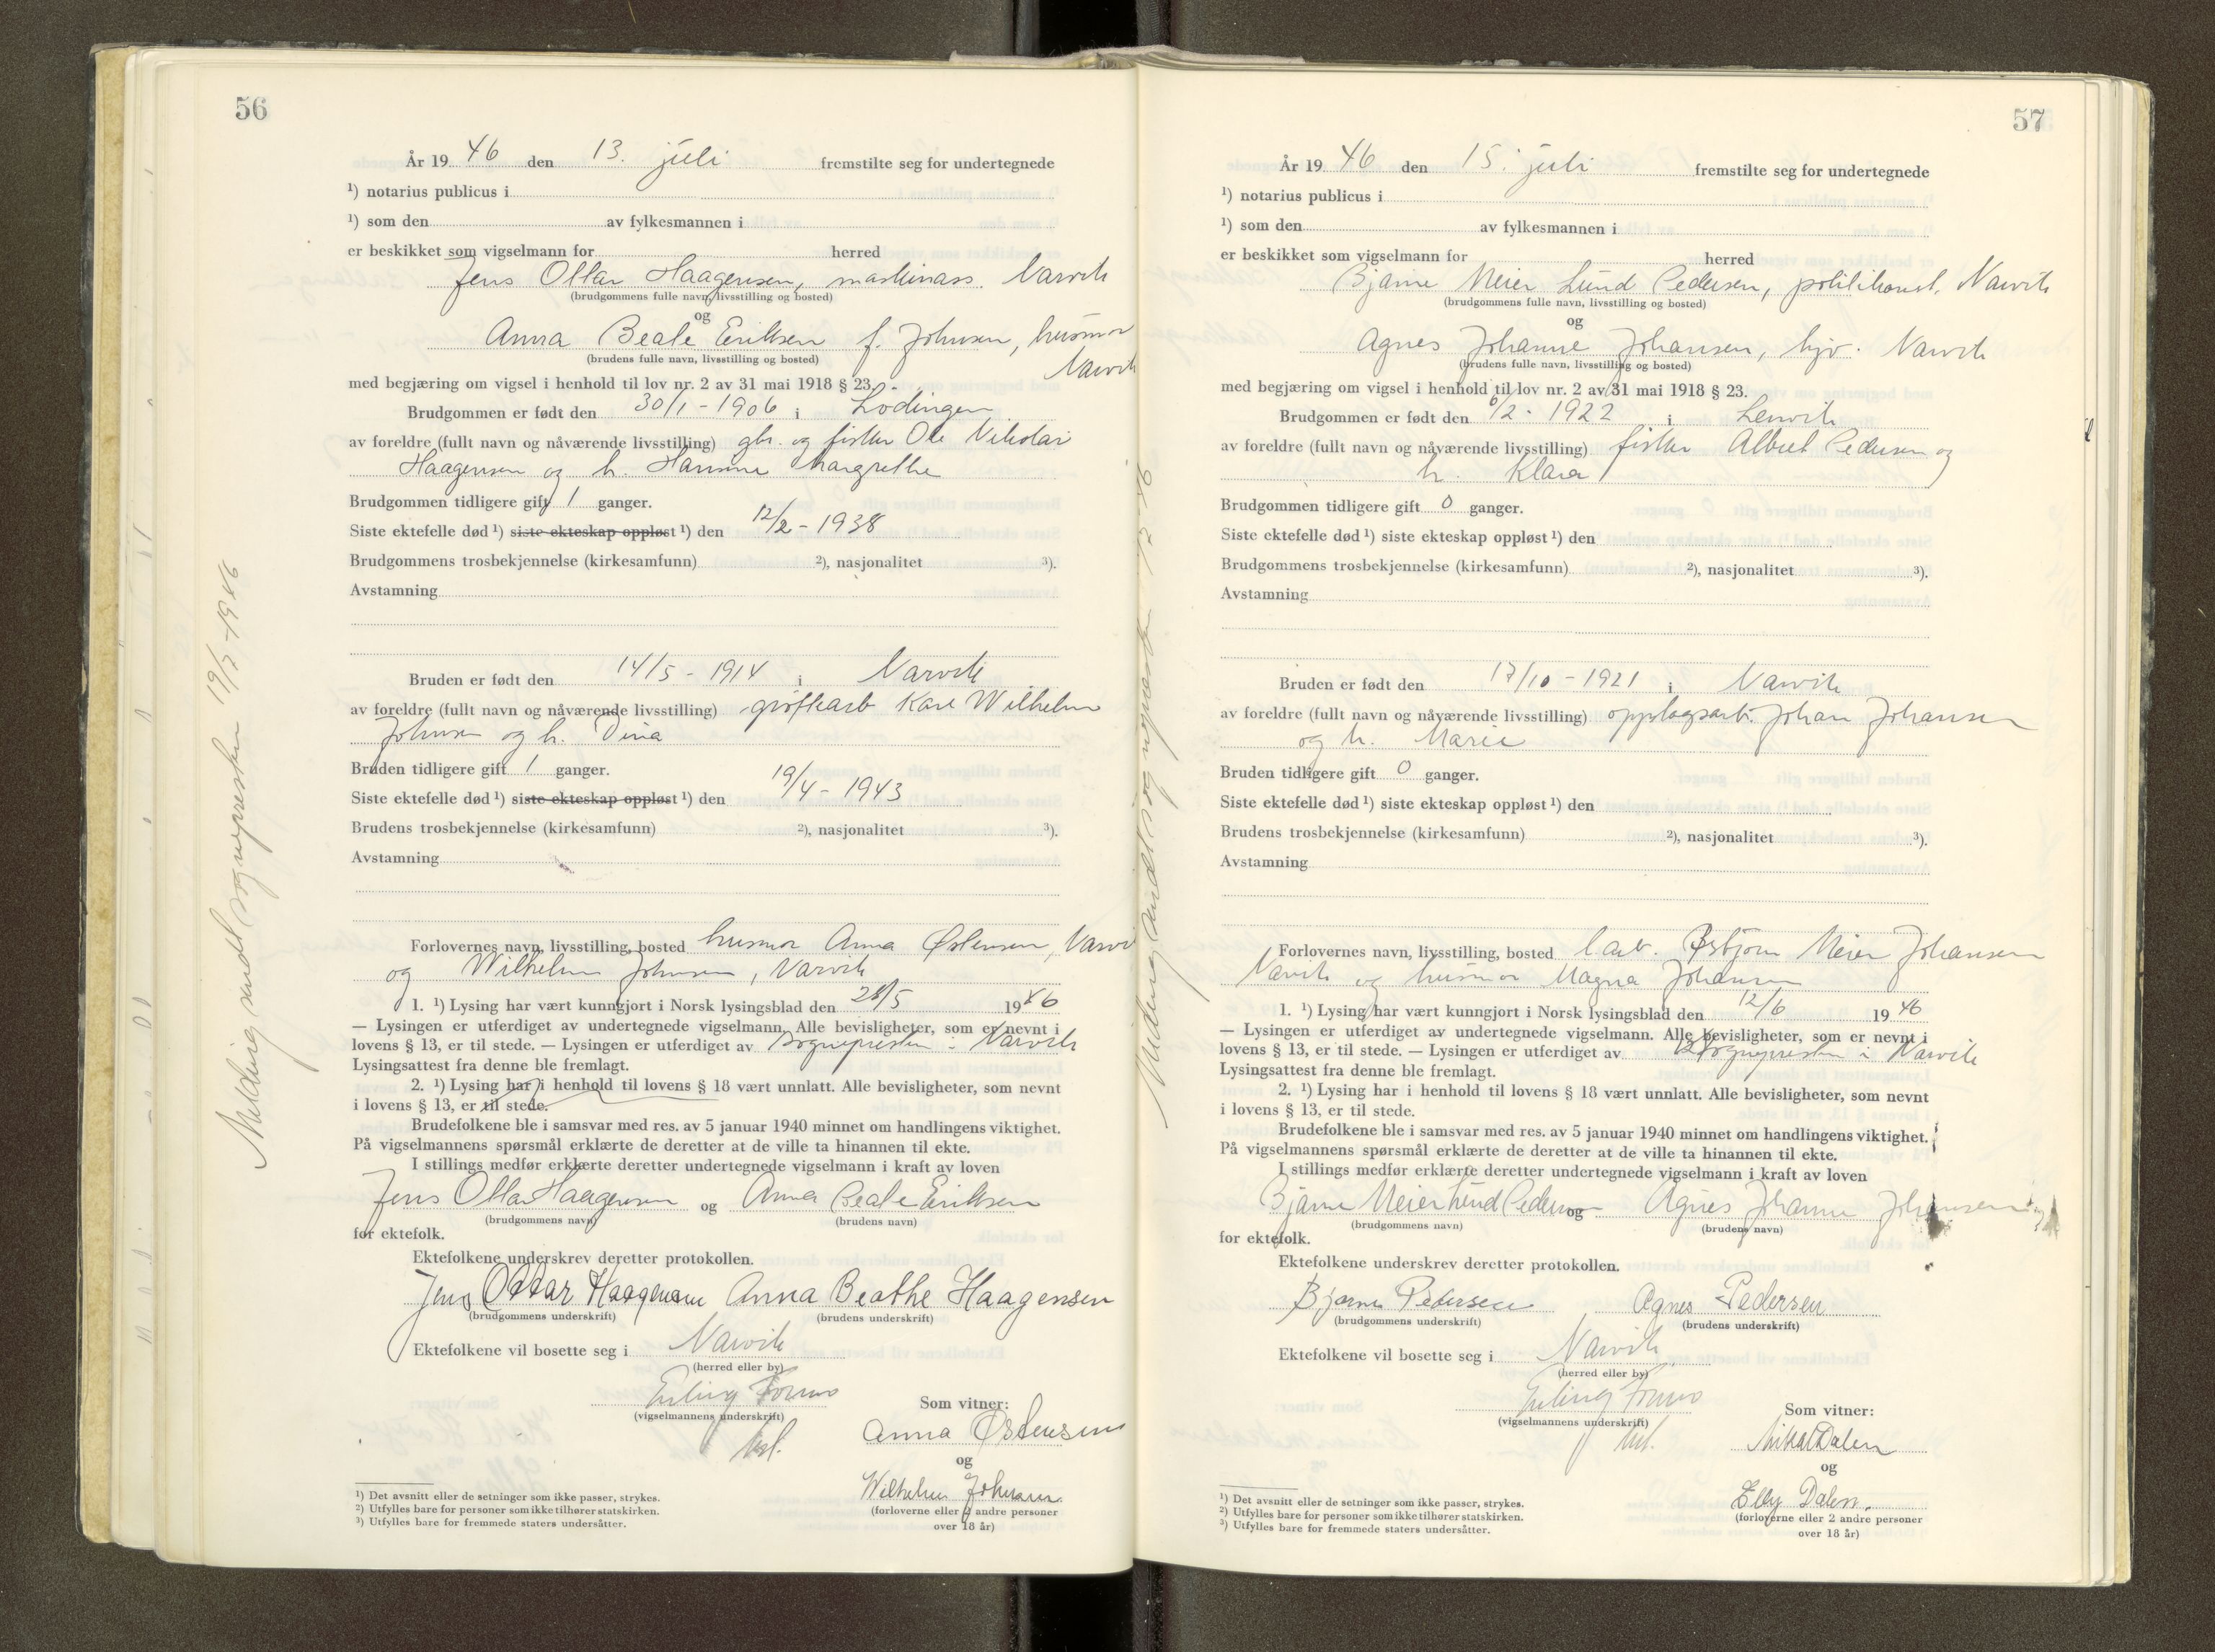 56
År 1946 den 13. juli fremstilte seg for undertegnede
¹) notarius publicus i
¹) som den av fylkesmannen i
er beskikket som vigselmann for herred
Jens Ottar Haagensen, maskinass. Narvik
(brudgommens fulle navn, livsstilling og bosted)
og
Anna Beate Eriksen f. Johnsen, husmor
(brudens fulle navn, livsstilling og bosted)
Narvik
med begjæring om vigsel i henhold til lov nr. 2 av 31 mai 1918 § 23.
Brudgommen er født den 30/1 - 1906 i Lødingen
av foreldre (fullt navn og nåværende livsstilling) gbr. og fisker Ole Nikolai
Haagensen og h. Hansine Margrethe
Brudgommen tidligere gift 1 ganger.
Siste ektefelle død ¹) siste ekteskap oppløst ¹) den 12/2 - 1938
Brudgommens trosbekjennelse (kirkesamfunn) ²), nasjonalitet ³).
Avstamning
Bruden er født den 14/5 - 1914 i Narvik
av foreldre (fullt navn og nåværende livsstilling) grøftearb Karl Wilhelm
Johnsen og h. Dina
Bruden tidligere gift 1 ganger.
Siste ektefelle død ¹) siste ekteskap oppløst ¹) den 19/4 - 1943
Brudens trosbekjennelse (kirkesamfunn) ²), nasjonalitet ³).
Avstamning
Forlovernes navn, livsstilling, bosted husmor Anna Østensen, Narvik
og Wilhelm Johnsen, Narvik
1. ¹) Lysing har vært kunngjort i Norsk lysingsblad den 28/5 1946
— Lysingen er utferdiget av undertegnede vigselmann. Alle bevisligheter, som er nevnt i
lovens § 13, er til stede. — Lysingen er utferdiget av Sognepresten i Narvik
Lysingsattest fra denne ble fremlagt.
2. ¹) Lysing har i henhold til lovens § 18 vært unnlatt. Alle bevisligheter, som nevnt
i lovens § 13, er til stede.
Brudefolkene ble i samsvar med res. av 5 januar 1940 minnet om handlingens viktighet.
På vigselmannens spørsmål erklærte de deretter at de ville ta hinannen til ekte.
I stillings medfør erklærte deretter undertegnede vigselmann i kraft av loven
Jens Ottar Haagensen og Anna Beate Eriksen
(brudgommens navn) (brudens navn)
for ektefolk.
Ektefolkene underskrev deretter protokollen.
Jens Ottar Haagensen Anna Beathe Haagensen
(brudgommens underskrift) (brudens underskrift)
Ektefolkene vil bosette seg i Narvik
(herred eller by)
Erling Formo
(vigselmannens underskrift)
Som vitner:
Anna Østensen
og
Wilhelm Johnsen.
(forloverne eller 2 andre personer
over 18 år)
¹) Det avsnitt eller de setninger som ikke passer, strykes.
²) Utfylles bare for personer som ikke tilhører statskirken.
³) Utfylles bare for fremmede staters undersåtter.
Melding sendt sognepresten 19/7-1946
57
År 1946 den 15. juli fremstilte seg for undertegnede
¹) notarius publicus i
¹) som den av fylkesmannen i
er beskikket som vigselmann for herred
Bjarne Meier Lund Pedersen, politikonst. Narvik
(brudgommens fulle navn, livsstilling og bosted)
og
Agnes Johanne Johansen, hjv. Narvik
(brudens fulle navn, livsstilling og bosted)
med begjæring om vigsel i henhold til lov nr. 2 av 31 mai 1918 § 23.
Brudgommen er født den /2 - 1922 i Lenvik
av foreldre (fullt navn og nåværende livsstilling) fisker Albert Pedersen og
h. Klara
Brudgommen tidligere gift 0 ganger.
Siste ektefelle død ¹) siste ekteskap oppløst ¹) den
Brudgommens trosbekjennelse (kirkesamfunn) ²), nasjonalitet ³).
Avstamning
Bruden er født den 17/10 - 1921 i Narvik
av foreldre (fullt navn og nåværende livsstilling) opplagsarb. Johan Johansen
og h. Marie
Bruden tidligere gift 0 ganger.
Siste ektefelle død ¹) siste ekteskap oppløst ¹) den
Brudens trosbekjennelse (kirkesamfunn) ²), nasjonalitet ³).
Avstamning
Forlovernes navn, livsstilling, bosted Meier Johansen
Narvik og husmor Magna Johansen
1. ¹) Lysing har vært kunngjort i Norsk lysingsblad den 12/6 1946
— Lysingen er utferdiget av undertegnede vigselmann. Alle bevisligheter, som er nevnt i
lovens § 13, er til stede. — Lysingen er utferdiget av Sognepresten i Narvik
Lysingsattest fra denne ble fremlagt.
2. ¹) Lysing har i henhold til lovens § 18 vært unnlatt. Alle bevisligheter, som nevnt
i lovens § 13, er til stede.
Brudefolkene ble i samsvar med res. av 5 januar 1940 minnet om handlingens viktighet.
På vigselmannens spørsmål erklærte de deretter at de ville ta hinannen til ekte.
I stillings medfør erklærte deretter undertegnede vigselmann i kraft av loven
Bjarne Meier Lund Pedersen og Agnes Johanne Johansen
(brudgommens navn) (brudens navn)
for ektefolk.
Ektefolkene underskrev deretter protokollen.
Bjarne Pedersen Agnes Pedersen
(brudgommens underskrift) (brudens underskrift)
Ektefolkene vil bosette seg i Narvik
(herred eller by)
Erling Formo
(vigselmannens underskrift)
Som vitner:
Dalen
og
Elly Dalen.
(forloverne eller 2 andre personer
over 18 år)
¹) Det avsnitt eller de setninger som ikke passer, strykes.
²) Utfylles bare for personer som ikke tilhører statskirken.
³) Utfylles bare for fremmede staters undersåtter.
Melding sendt sognepresten